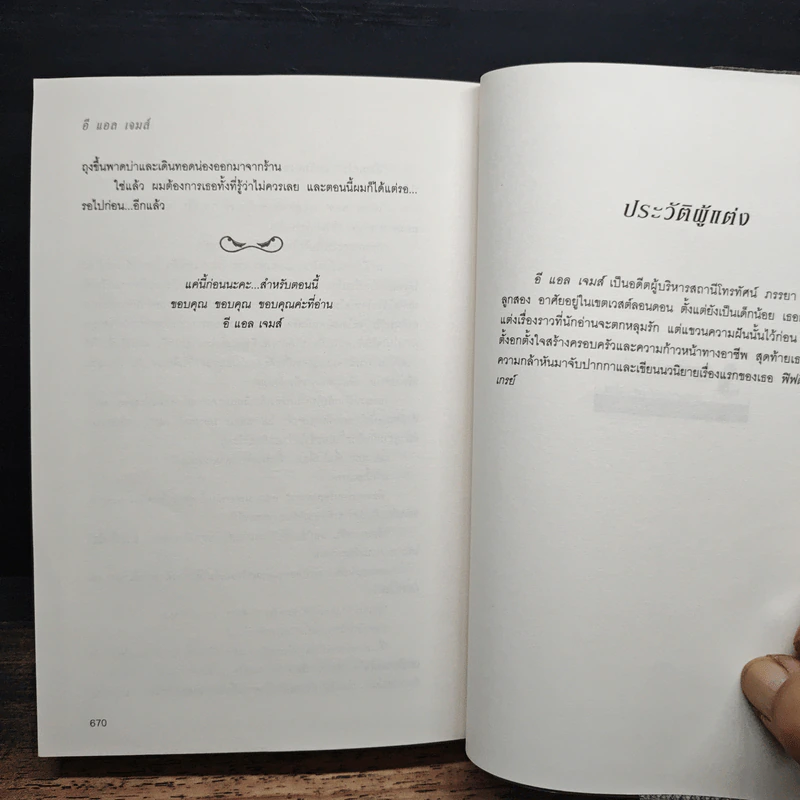 อี แอล เจมส์
ถุงขึ้นพาดบ่าและเดินทอดน่องออกมาจากร้าน
ใช่แล้ว ผมต้องการเธอทั้งที่รู้ว่าไม่ควรเลย และตอนนี้ผมก็ได้แต่รอ...
รอไปก่อน...อีกแล้ว
แค่นี้ก่อนนะคะ...สำหรับตอนนี้
ขอบคุณ ขอบคุณ ขอบคุณค่ะที่อ่าน
อี แอล เจมส์
670
ประวัติผู้แต่ง
อี แอล เจมส์ เป็นอดีตผู้บริหารสถานีโทรทัศน์ ภรรยา
ลูกสอง อาศัยอยู่ในเขตเวสต์ลอนดอน ตั้งแต่ยังเป็นเด็กน้อย
แต่งเรื่องราวที่นักอ่านจะตกหลุมรัก แต่แขวนความฝันนั้นไว้ก่อน
ตั้งอกตั้งใจสร้างครอบครัวและความก้าวหน้าทางอาชีพ สุดท้าย
ความกล้าหันมาจับปากกาและเขียนนวนิยายเรื่องแรกของเธอ
เกรย์